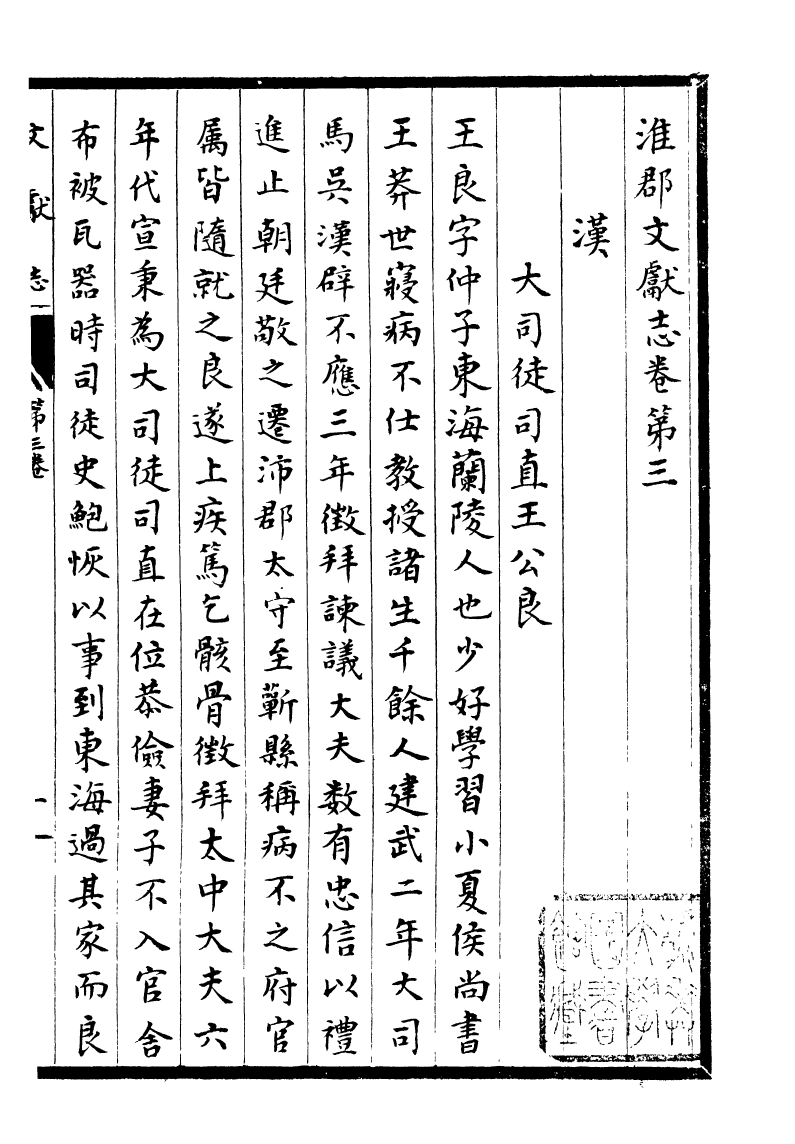 淮郡文獻志卷第三
漢
大司徒司直王公良
王良字仲子東海蘭陵人也少好學習小夏侯尚書
王莽世寢病不仕教授諸生千餘人建武二年大司
馬吳漢辟不應三年徵拜諫議大夫数有忠信以禮
進止朝廷敬之遷沛郡太守至蘄縣稱病不之府官
属皆隨就之良遂上疾篤乞骸骨徵拜太中大夫六
年代宣秉為大司徒司直在位恭儉妻子不入官舍
布被瓦器時司徒史鮑恢以事到東海過其家而良
文獻志 第三卷 一